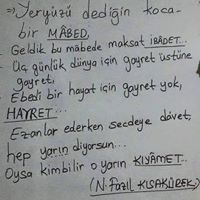 ⇒ Yeryüzü dediğin koca-
bir MÂBED,
- Geldik bu mâbede maksat İBÂDET...
- Üç günlük dünya için gayret üstüne
gayret,
- Ebedî bir hayat için gayret yok,
HAYRET...
Ezanlar ederken secdeye dâvet,
hep yarın diyorsun...
Oysa kimbilir o yarın KIYÂMET..
(N. Fazıl KISAKÜREK)